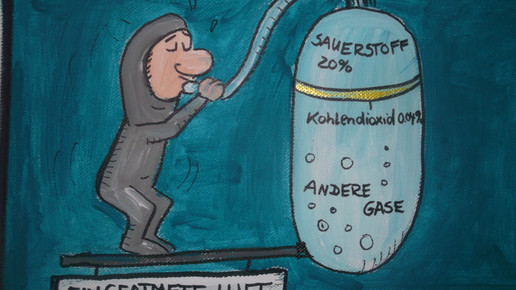 SAUERSTOFF
20%
Kohlendioxid 0.04%
ANDERE
GASE
EINGEATMETE LUFT